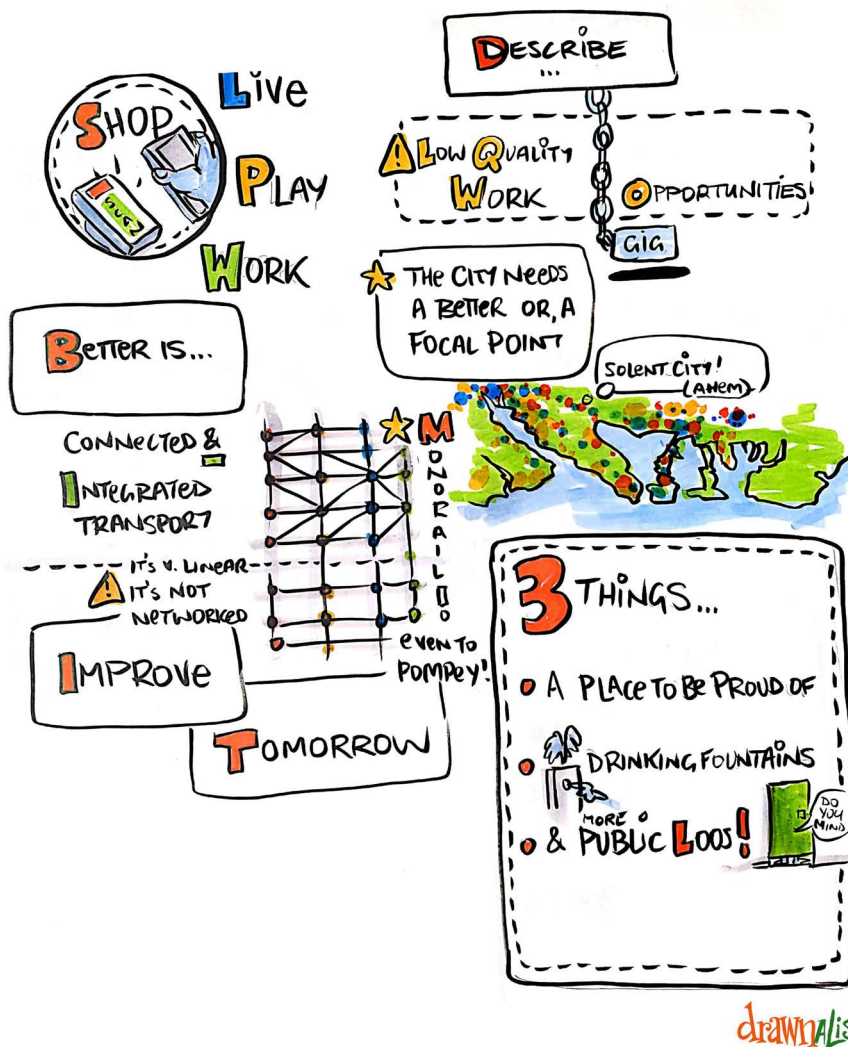 SHOP
Live
PLAY
WORK
DESCRIBE
...
LOW QUALITY
WORK
OPPORTUNITIES
GIG
THE CITY NEEDS
A BETTER OR, A
FOCAL POINT
SOLENT CITY!
(AHEM)
BETTER IS...
CONNECTED &
INTEGRATED
TRANSPORT
MONORAIL
IT'S V. LINEAR
IT'S NOT
NETWORKED
EVEN TO
POMPEY!
IMPROVE
TOMORROW
3 THINGS...
A PLACE TO BE PROUD OF
DRINKING FOUNTAINS
MORE
& PUBLIC LOOS!
DO
YOU
MIND
drawnalis